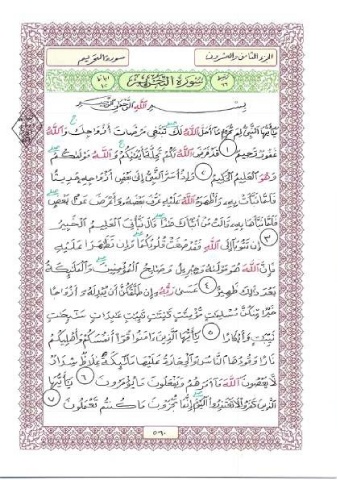 الجزء الثامن والعشرون
سورة التحريم
سُورَةُ التَّحْرِيمِ
بِسْمِ اللَّهِ الرَّحْمَٰنِ الرَّحِيمِ
يَٰٓأَيُّهَا النَّبِيُّ لِمَ تُحَرِّمُ مَآ أَحَلَّ اللَّهُ لَكَ تَبْتَغِي مَرْضَاتَ أَزْوَٰجِكَ وَاللَّهُ
غَفُورٌ رَّحِيمٌ ١ قَدْ فَرَضَ اللَّهُ لَكُمْ تَحِلَّةَ أَيْمَٰنِكُمْ وَاللَّهُ مَوْلَىٰكُمْ
وَهُوَ الْعَلِيمُ الْحَكِيمُ ٢ وَإِذْ أَسَرَّ النَّبِيُّ إِلَىٰ بَعْضِ أَزْوَٰجِهِ حَدِيثًا
فَلَمَّا نَبَّأَتْ بِهِ وَأَظْهَرَهُ اللَّهُ عَلَيْهِ عَرَّفَ بَعْضَهُ وَأَعْرَضَ عَنۢ بَعْضٍ
فَلَمَّا نَبَّأَهَا بِهِ قَالَتْ مَنْ أَنۢبَأَكَ هَٰذَا قَالَ نَبَّأَنِيَ الْعَلِيمُ الْخَبِيرُ
٣ إِن تَتُوبَآ إِلَى اللَّهِ فَقَدْ صَغَتْ قُلُوبُكُمَا وَإِن تَظَٰهَرَا عَلَيْهِ
فَإِنَّ اللَّهَ هُوَ مَوْلَىٰهُ وَجِبْرِيلُ وَصَٰلِحُ الْمُؤْمِنِينَ وَالْمَلَٰٓئِكَةُ
بَعْدَ ذَٰلِكَ ظَهِيرٌ ٤ عَسَىٰ رَبُّهُ إِن طَلَّقَكُنَّ أَن يُبْدِلَهُ أَزْوَٰجًا
خَيْرًا مِّنكُنَّ مُسْلِمَٰتٍ مُّؤْمِنَٰتٍ قَٰنِتَٰتٍ تَٰٓئِبَٰتٍ عَٰبِدَٰتٍ سَٰٓئِحَٰتٍ
ثَيِّبَٰتٍ وَأَبْكَارًا ٥ يَٰٓأَيُّهَا الَّذِينَ ءَامَنُوا قُوٓا أَنفُسَكُمْ وَأَهْلِيكُمْ
نَارًا وَقُودُهَا النَّاسُ وَالْحِجَارَةُ عَلَيْهَا مَلَٰٓئِكَةٌ غِلَاظٌ شِدَادٌ
لَّا يَعْصُونَ اللَّهَ مَآ أَمَرَهُمْ وَيَفْعَلُونَ مَا يُؤْمَرُونَ ٦ يَٰٓأَيُّهَا
الَّذِينَ كَفَرُوا لَا تَعْتَذِرُوا الْيَوْمَ إِنَّمَا تُجْزَوْنَ مَا كُنتُمْ تَعْمَلُونَ ٧
٥٦٠